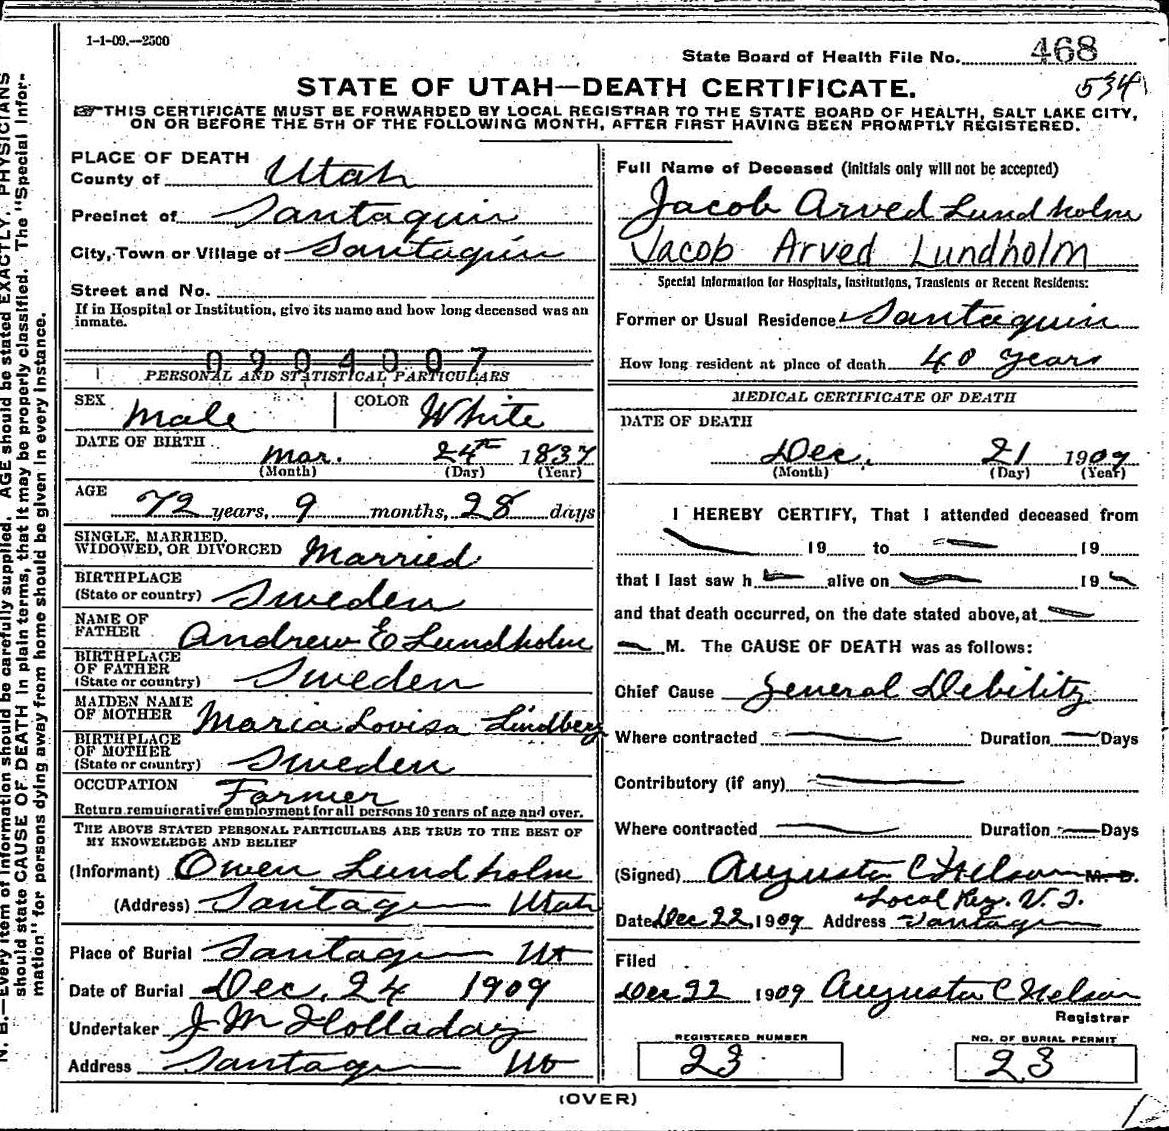 1-1-09.—2500
State Board of Health File No. 468
534
STATE OF UTAH—DEATH CERTIFICATE.
THIS CERTIFICATE MUST BE FORWARDED BY LOCAL REGISTRAR TO THE STATE BOARD OF HEALTH, SALT LAKE CITY,
ON OR BEFORE THE 5TH OF THE FOLLOWING MONTH, AFTER FIRST HAVING BEEN PROMPTLY REGISTERED.
PLACE OF DEATH
County of Utah
Precinct of Santaquin
City, Town or Village of Santaquin
Street and No.
If in Hospital or Institution, give its name and how long deceased was an
inmate.
0904007
PERSONAL AND STATISTICAL PARTICULARS
SEX Male COLOR White
DATE OF BIRTH Mar. 24th 1837
(Month) (Day) (Year)
AGE 72 years, 9 months, 28 days
SINGLE, MARRIED,
WIDOWED, OR DIVORCED Married
BIRTHPLACE
(State or country) Sweden
NAME OF
FATHER Andrew E Lundholm
BIRTHPLACE
OF FATHER
(State or country) Sweden
MAIDEN NAME
OF MOTHER Maria Lovisa Lindberg
BIRTHPLACE
OF MOTHER
(State or country) Sweden
OCCUPATION Farmer
Return remunerative employment for all persons 10 years of age and over.
THE ABOVE STATED PERSONAL PARTICULARS ARE TRUE TO THE BEST OF
MY KNOWLEDGE AND BELIEF
(Informant) Owen Lundholm
(Address) Santaquin Utah
Place of Burial Santaquin Ut
Date of Burial Dec. 24 1909
Undertaker J M Holladay
Address Santaquin Ut
Full Name of Deceased (initials only will not be accepted)
Jacob Arved Lundholm
Jacob Arved Lundholm
Special Information for Hospitals, Institutions, Transients or Recent Residents:
Former or Usual Residence Santaquin
How long resident at place of death 40 years
MEDICAL CERTIFICATE OF DEATH
DATE OF DEATH
Dec. 21 1909
(Month) (Day) (Year)
I HEREBY CERTIFY, That I attended deceased from
19 to 19
that I last saw h alive on 19
and that death occurred, on the date stated above, at
M. The CAUSE OF DEATH was as follows:
Chief Cause General Debility
Where contracted Duration Days
Contributory (if any)
Where contracted Duration Days
(Signed) Augusta C Nelson M. D.
Local Reg. V. S.
Date Dec 22, 1909 Address Santaquin
Filed
Dec 22 1909 Augusta C Nelson
Registrar
REGISTERED NUMBER
23
NO. OF BURIAL PERMIT
23
(OVER)
N. B.—Every item of information should be carefully supplied. AGE should be stated EXACTLY. PHYSICIANS
should state CAUSE OF DEATH in plain terms, that it may be properly classified. The "Special Infor-
mation" for persons dying away from home should be given in every instance.